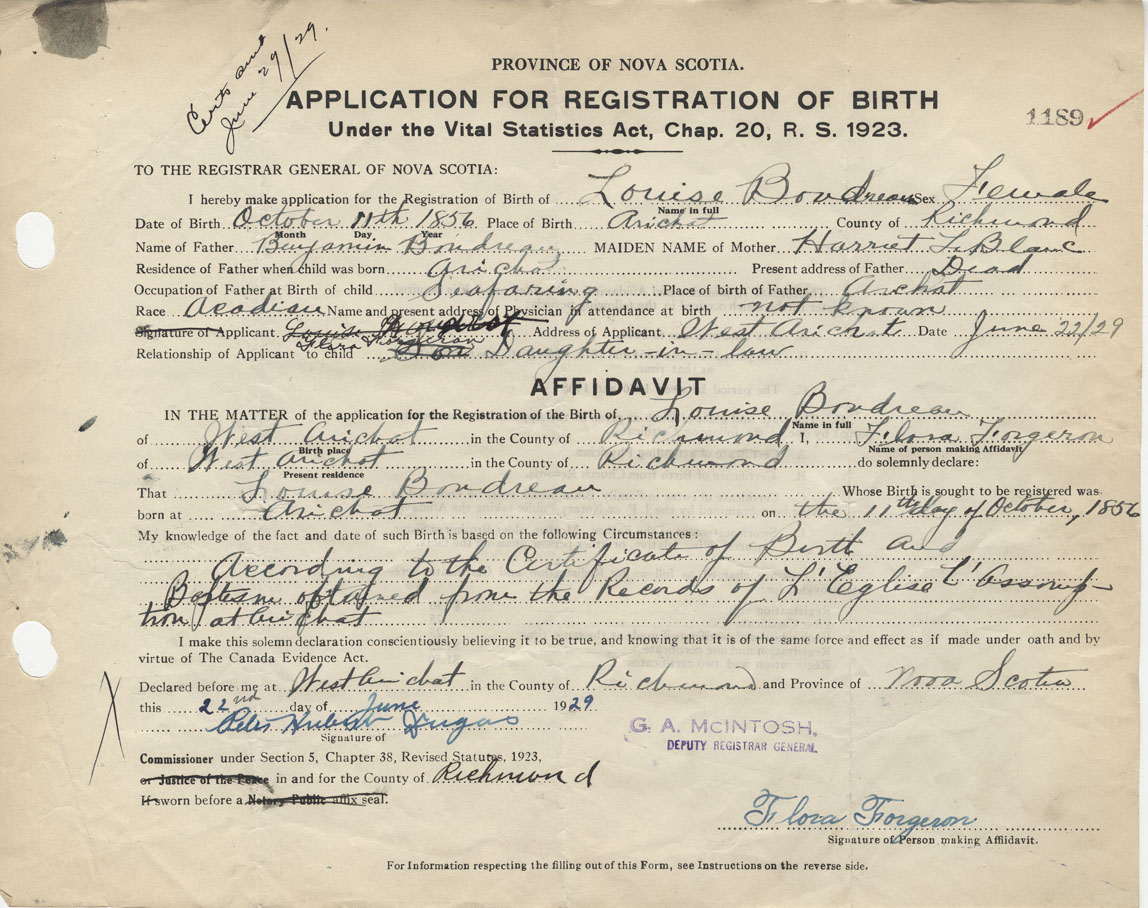 Certs sent
June 29/29.
PROVINCE OF NOVA SCOTIA.
APPLICATION FOR REGISTRATION OF BIRTH
1189
Under the Vital Statistics Act, Chap. 20, R. S. 1923.
TO THE REGISTRAR GENERAL OF NOVA SCOTIA:
I hereby make application for the Registration of Birth of Louise Boudreau Sex Female
Name in full
Date of Birth October 11th 1856 Place of Birth Arichat County of Richmond
Month Day Year
Name of Father Benjamin Boudreau MAIDEN NAME of Mother Harriet LeBlanc
Residence of Father when child was born Arichat Present address of Father Dead
Occupation of Father at Birth of child Seafaring Place of birth of Father Arichat
Race Acadian Name and present address of Physician in attendance at birth not known
Signature of Applicant Louise Flora Forgeron Address of Applicant West Arichat Date June 22/29
Relationship of Applicant to child Son Daughter-in-law
AFFIDAVIT
IN THE MATTER of the application for the Registration of the Birth of Louise Boudreau
Name in full
of West Arichat in the County of Richmond I, Flora Forgeron
Birth place Name of person making Affidavit
of West Arichat in the County of Richmond do solemnly declare:
Present residence
That Louise Boudreau Whose Birth is sought to be registered was
born at Arichat on the 11th day of October, 1856
My knowledge of the fact and date of such Birth is based on the following Circumstances:
According to the Certificate of Birth and
Baptism obtained from the Records of L'Eglise L'Assomp-
tion at Arichat
I make this solemn declaration conscientiously believing it to be true, and knowing that it is of the same force and effect as if made under oath and by
virtue of The Canada Evidence Act.
Declared before me at West Arichat in the County of Richmond and Province of Nova Scotia
this 22nd day of June 1929
Peter Hubert Dugas
Signature of
G. A. McINTOSH,
DEPUTY REGISTRAR GENERAL.
Commissioner under Section 5, Chapter 38, Revised Statutes, 1923,
or Justice of the Peace in and for the County of Richmond
If sworn before a Notary Public affix seal.
Flora Forgeron
Signature of Person making Affiidavit.
For Information respecting the filling out of this Form, see Instructions on the reverse side.